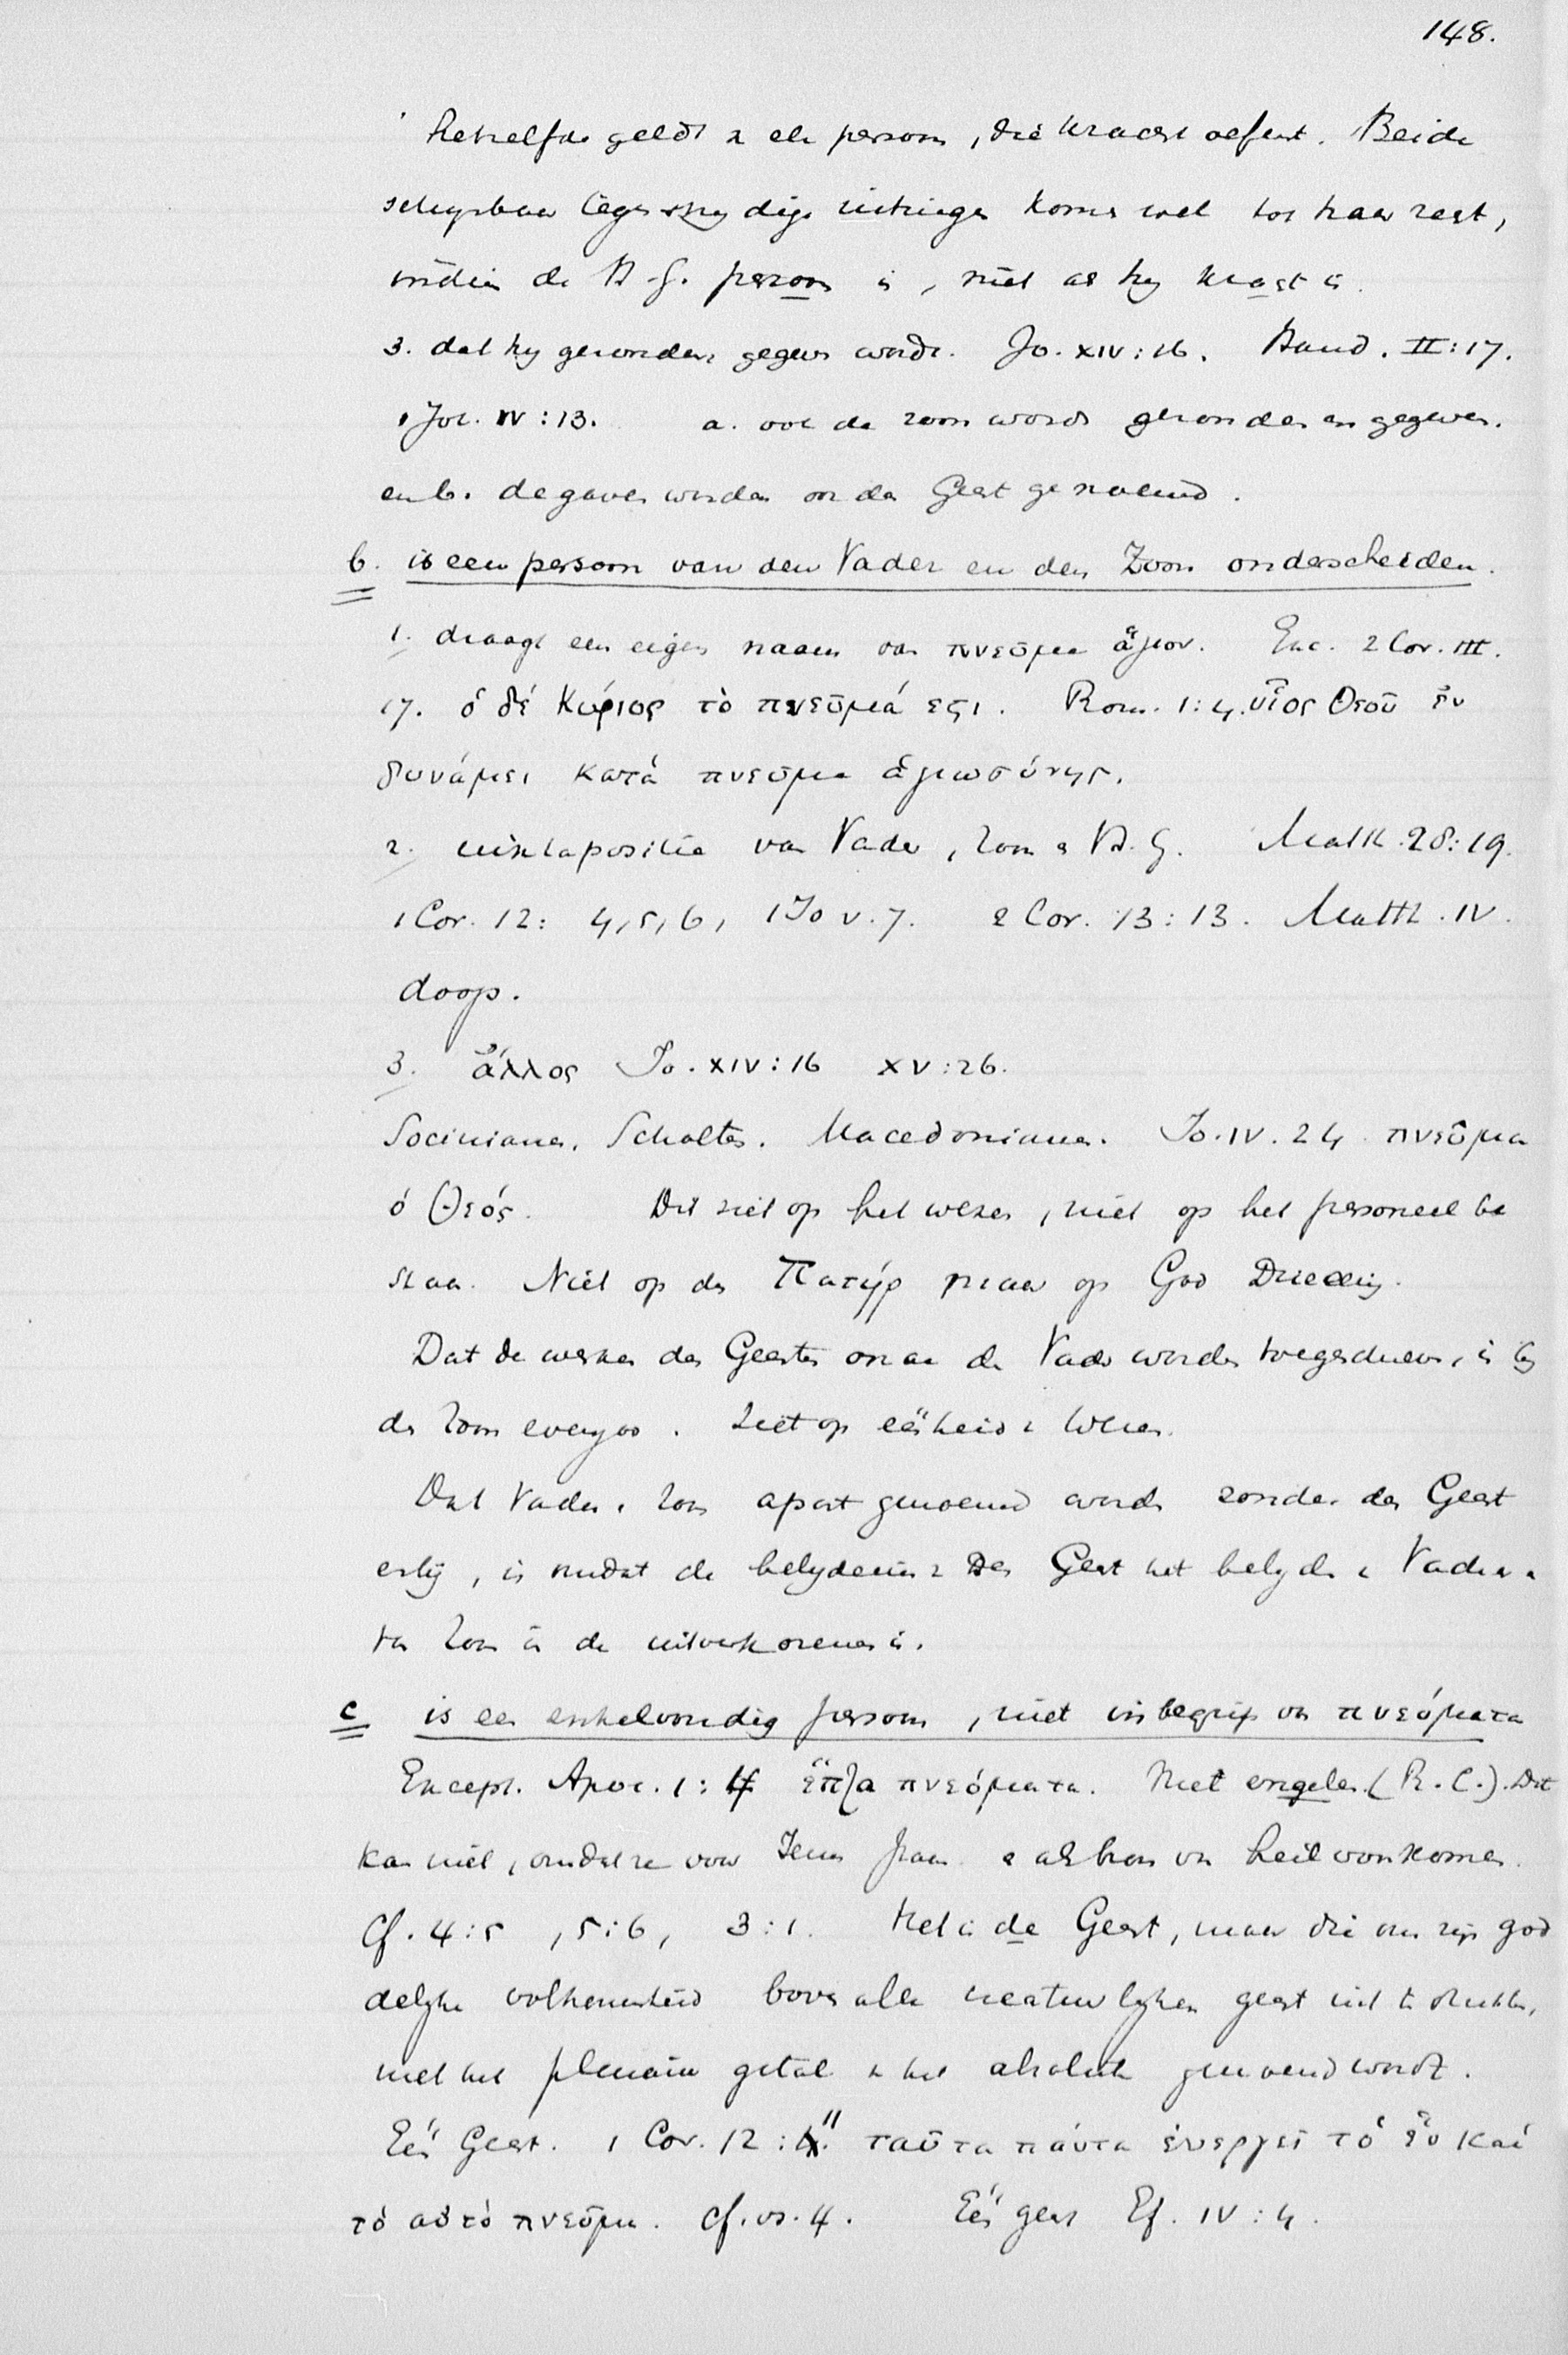 148.
hetzelfde geldt v een persoon, die kracht oefent. Beide
schijnbaar tegenstrydige uitingen komen wel tot haar recht,
indien de H. G. persoon is, niet als hy kracht is.
3. dat hy gezonden, gegeven wordt. Jo. XIV:16. Hand. II:17.
1 Joh. IV:13. a. ook de zoon wordt gezonden en gegeven.
en b. de gaven worden ook de Geest genoemd.
b. is een persoon van den Vader en den Zoon onderscheiden.
1. draagt een eigen naam van πνεῦμα ἅγιον. Exc. 2 Cor. III.
17. ὁ δέ Κύριος τὸ πνεῦμά εςι. Rom. 1:4. υἱος Θεοῦ ἐν
δυνάμει κατά πνεῦμα ἁγιωσύνης.
2. iuxtapositie van Vader, Zoon & H. G. Matth. 28:19.
1 Cor. 12: 4, 5, 6, 1 Jo V. 7. 2 Cor. 13:13. Matth. IV.
doop.
3. ἄλλος Jo. XIV:16 XV:26.
Socinianen. Scholten. Macedonianen. Jo. IV. 24 πνεῦμα
ὁ Θεός. Dit ziet op het wezen, niet op het personeel be
staan. Niet op den Πατήρ maar op God Drieeenig.
Dat de werken des Geestes ook aan de Vader worden toegeschreven, is by
den Zoon evenzoo. Ziet op eenheid v Wezen.
Dat Vader & Zoon apart genoemd wordt zonder den Geest
erbij, is omdat de belydenis v Den Geest het belyden v Vader &
den Zoon in de uitverkorenen is.
c is een enkelvoudig persoon, niet inbegrip van πνεύματα
Except. Apoc. 1:4 ἕπτα πνεύματα. Niet engelen (R. C.). Dit
kan niet, omdat ze voor Jezus staan & als bron van heil voorkomen.
Cf. 4:5, 5:6, 3:1. Het is de Geest, maar die om zijn god
delyke volkomenheid boven alle creatuurlyken geest uit te drukken,
met het plenaire getal v het absolute genoemd wordt.
Eén Geest. 1 Cor. 12:11 ταῦτα πάντα ἐνεργεῖ τὸ ἓν καί
τὸ αὐτὸ πνεῦμα. cf. vs. 4. Eén geest Ef. IV:4.